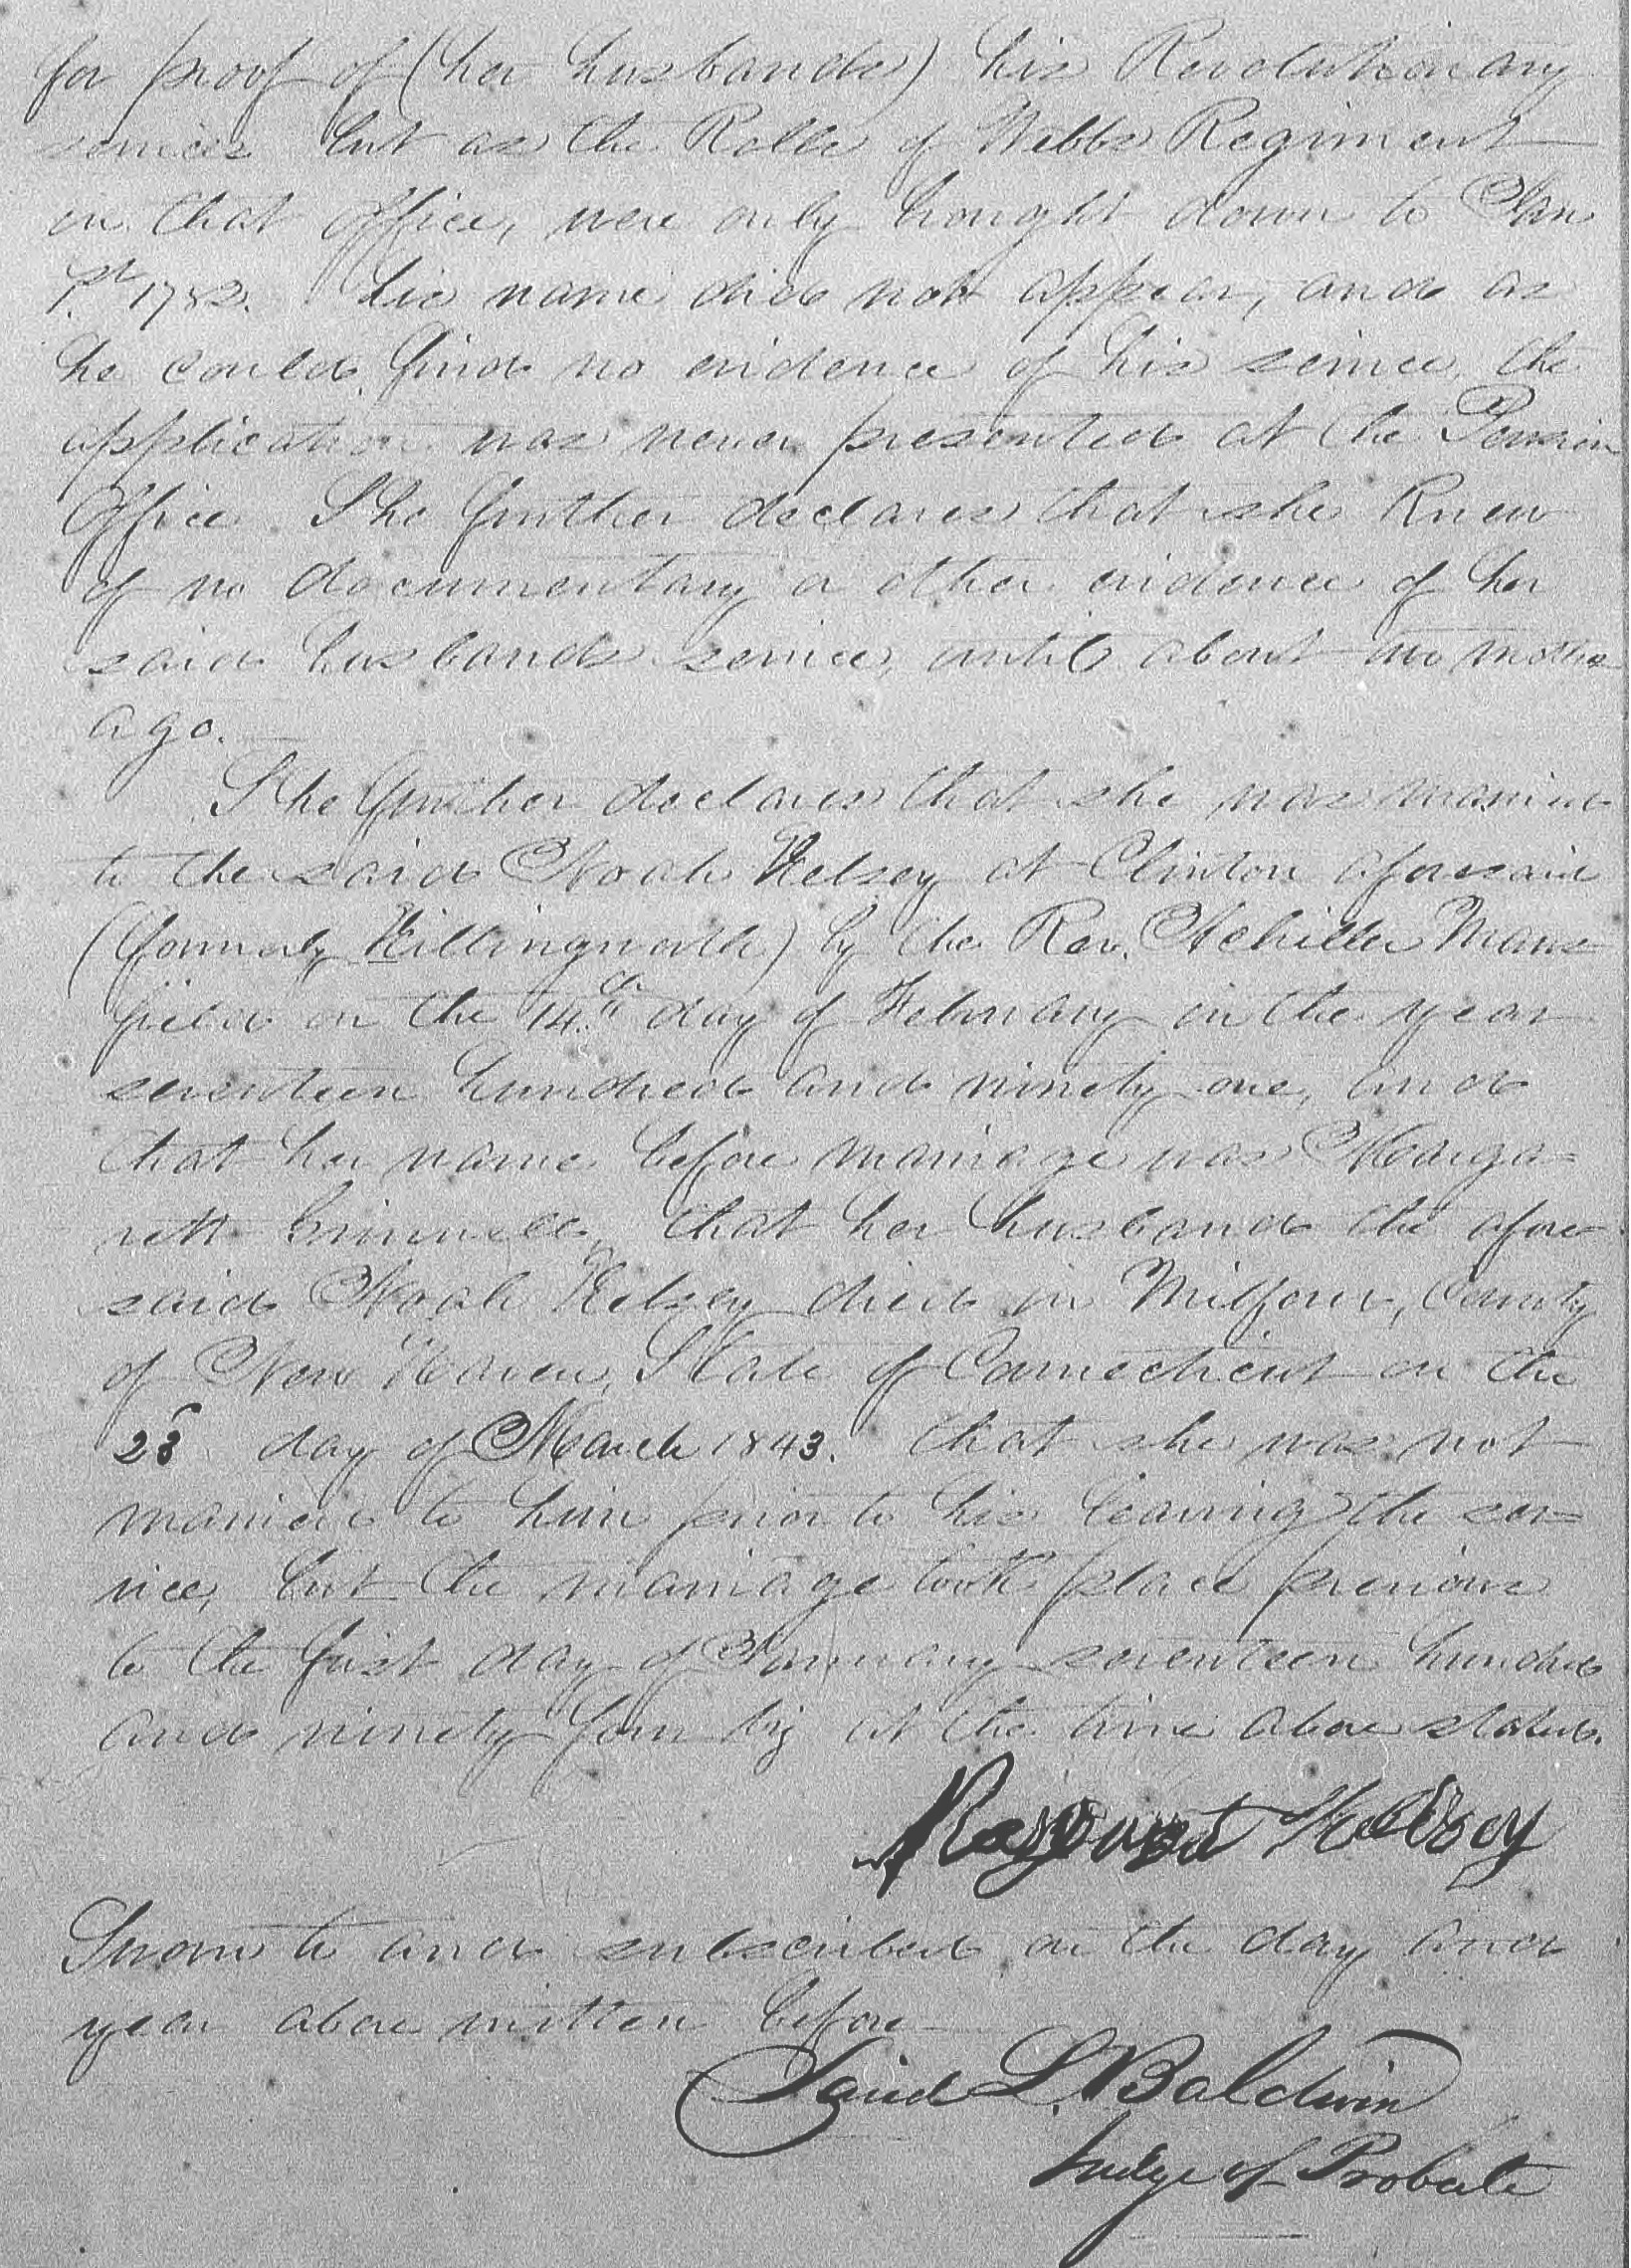 for proof of (her husbands) his Revolutionary
services but as the Rolls of Webbs Regiment
in that office, were only brought down to Jan
1st 1782. his name did not appear, and as
he could find no evidence of his service, the
application was never presented at the Pension
Office. She further declares that she knew
of no documentary or other evidence of her
said husbands service, until about two moths
ago.
She further declares that she was married
to the said Noah Kelsey at Clinton aforesaid
(formerly Killingworth) by the Rev. Achilles Mans
field on the 14th day of February in the year
seventeen hundred and ninety one, and
that her name before marriage was Marga=
rett Grinnell, that her husband the afore
said Noah Kelsey died in Milford, County
of New Haven, State of Connecticut on the
28 day of March 1843. that she was not
married to him prior to his leaving the ser=
vice, but the marriage took place previous
to the first day of January seventeen hundred
and ninety four viz at the time above stated.
Kelsey
Sworn to and subscribed on the day and
year above written before
David L. Baldwin
Judge of Probate